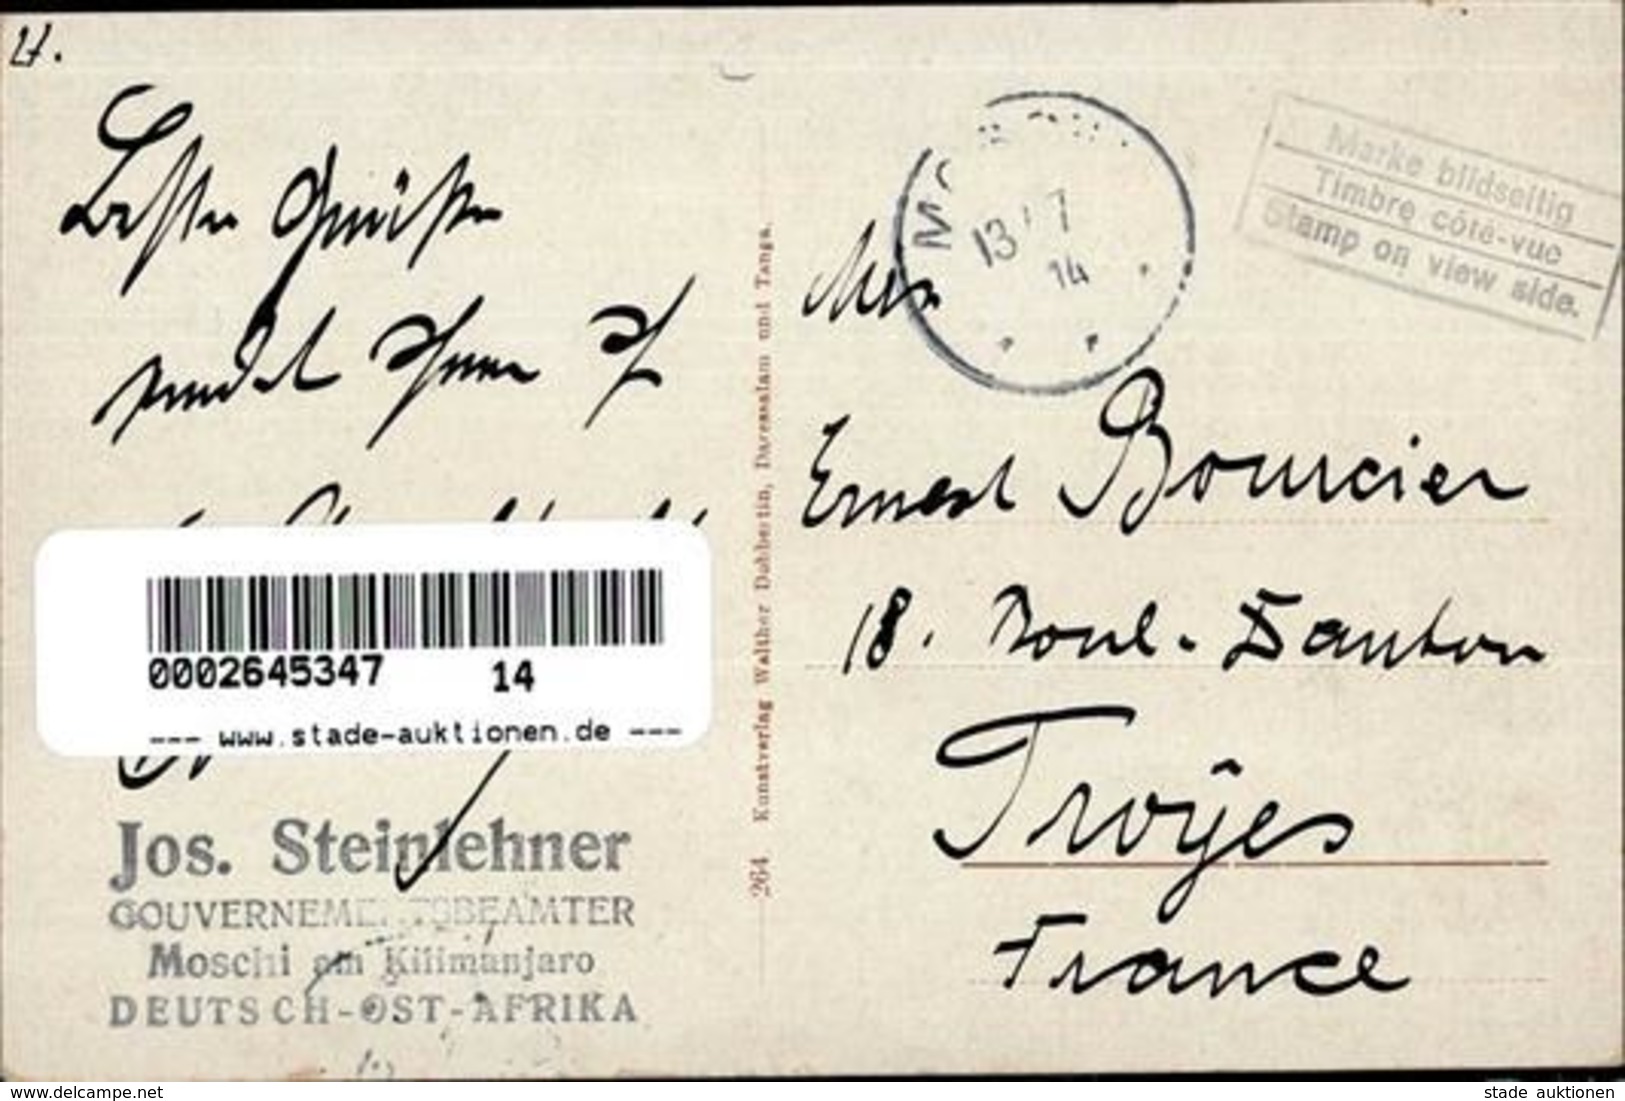 Beste Grüße
sendet Ihnen
0002645347 14
--- www.stade-auktionen.de ---
Jos. Steinlehner
GOUVERNEMENTSBEAMTER
Moschi am Kilimanjaro
DEUTSCH-OST-AFRIKA
264 Kunstverlag Walther Dobbertin, Daressalam und Tanga.
13 7
14
Marke bildseitig
Timbre côté-vue
Stamp on view side.
Ernest Bourcier
18. Boul. Danton
Troyes
France
stade auktionen